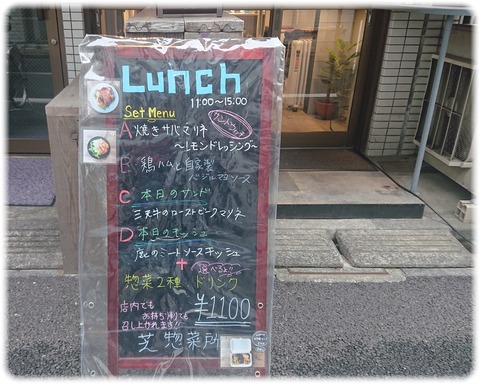 Lunch
11:00~15:00
Set Menu
A 焼きサバマリネ
~レモンドレッシング~
B 鶏ハムと自家製
バジルマヨソース
C 本日のサンド
三元牛のローストビーフマリネ
D 本日のキッシュ
鹿のミートソースキッシュ
+
惣菜2種 ドリンク
選べる!!
¥1100
店内でも
お持ち帰りでも
召し上がれます!!
芝 惣菜所